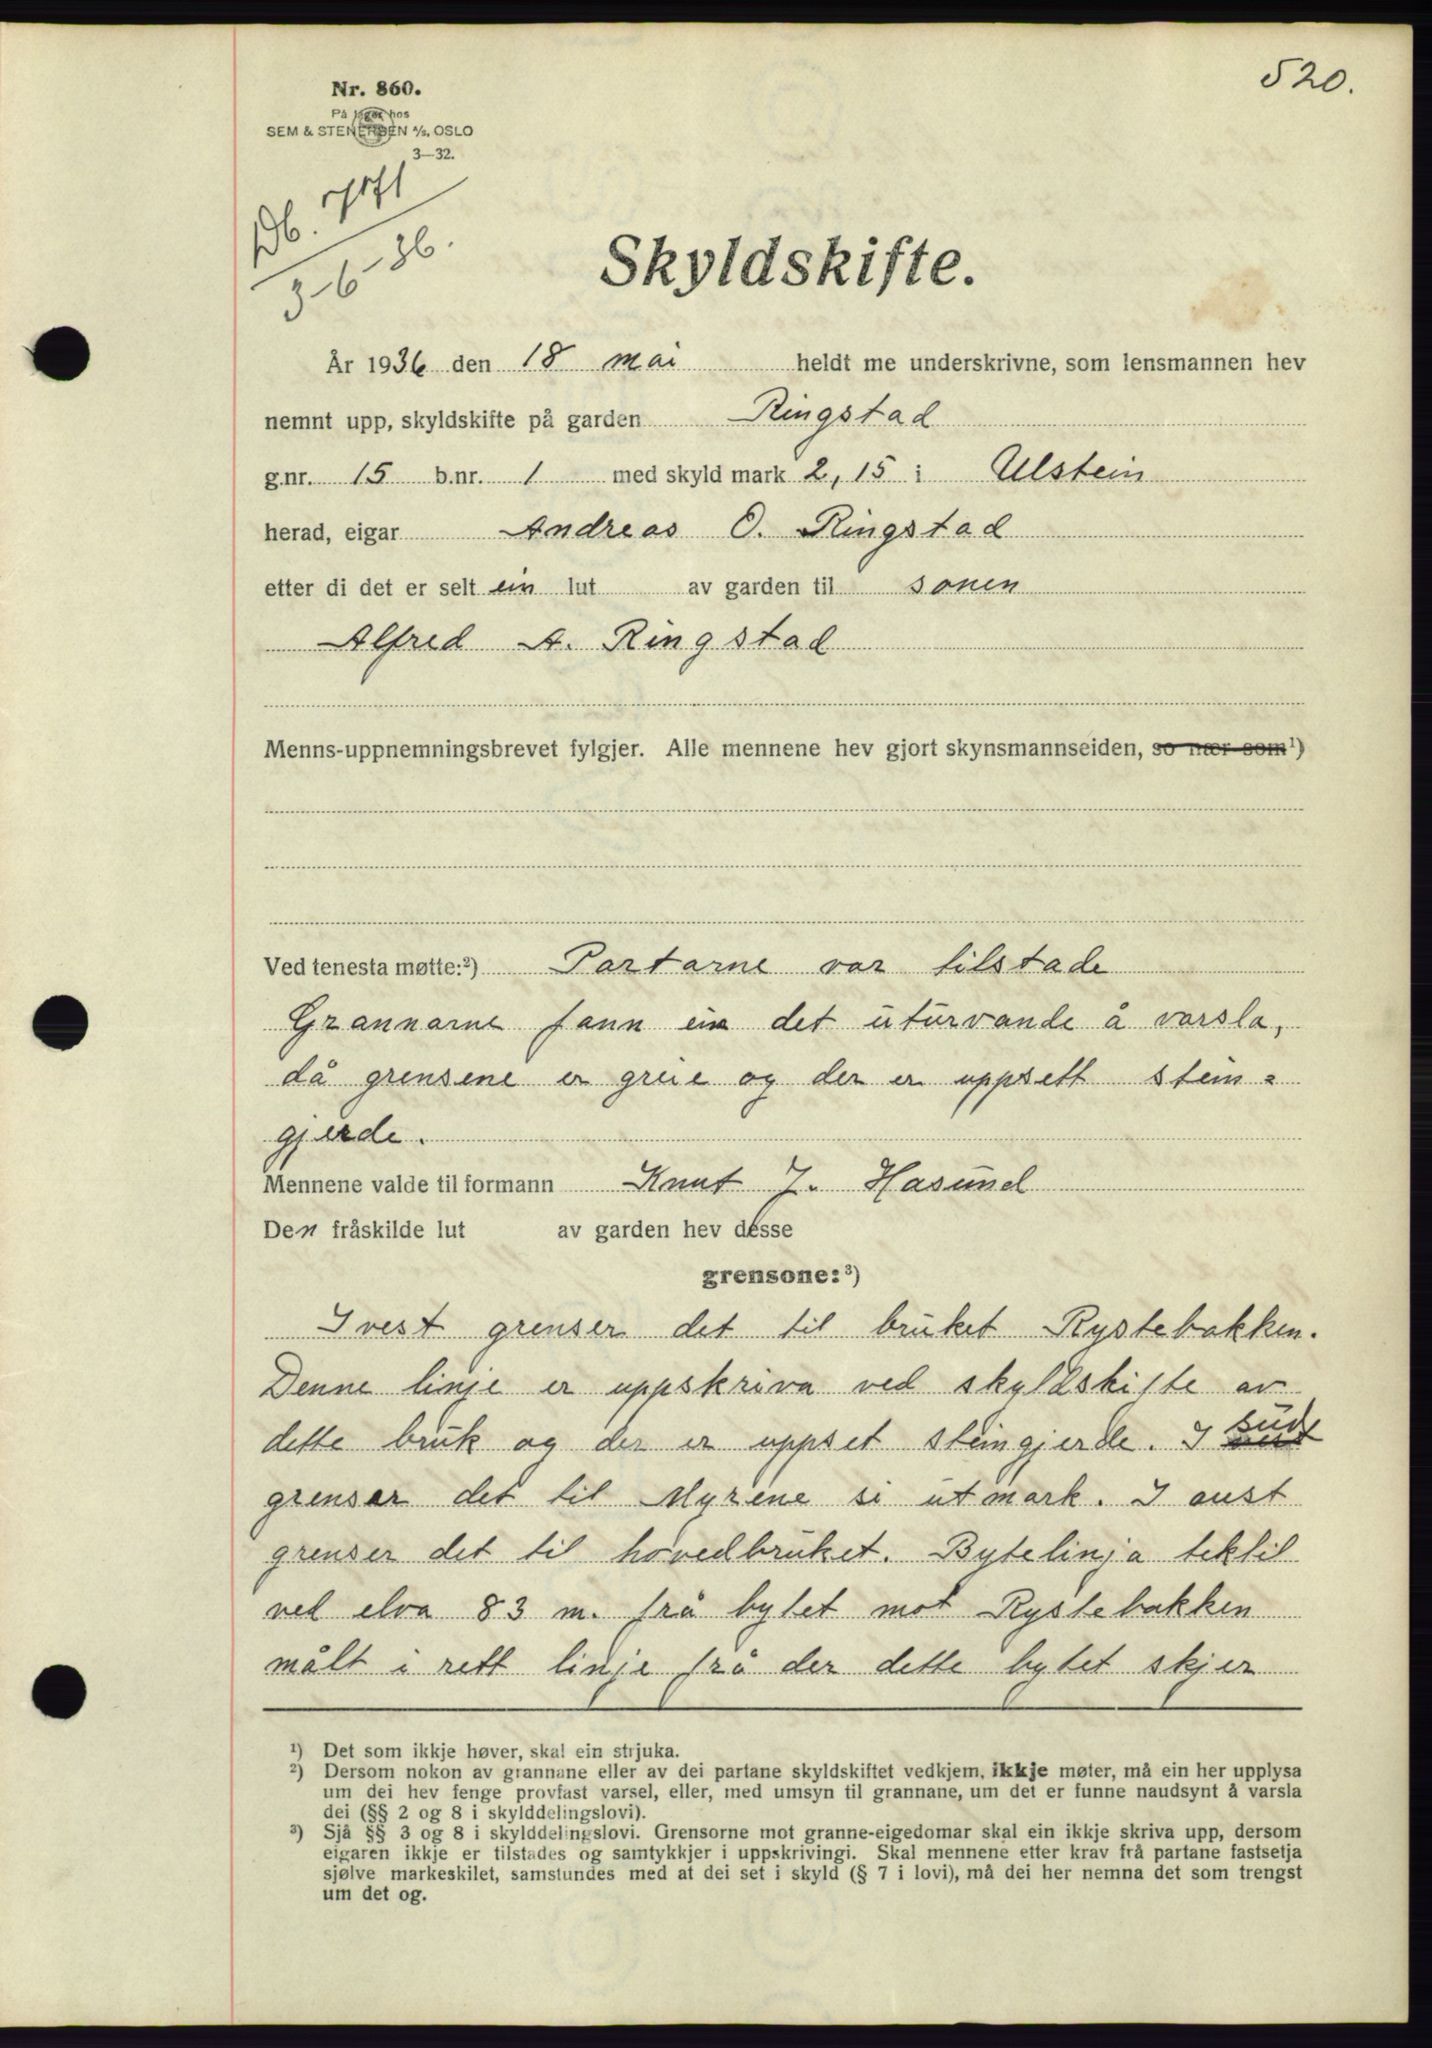 520.
Nr. 860.
På lager hos
SEM & STENERSEN A/S, OSLO
3—32.
Db.
3-6-36.
Skyldskifte.
År 1936 den 18 mai heldt me underskrivne, som lensmannen hev
nemnt upp, skyldskifte på garden Ringstad
g.nr. 15 b.nr. 1 med skyld mark 2,15 i Ulstein
herad, eigar Andreas O. Ringstad
etter di det er selt ein lut av garden til sonen
Alfred A. Ringstad
Menns-uppnemningsbrevet fylgjer. Alle mennene hev gjort skynsmannseiden, so nær som¹)
Ved tenesta møtte:²) Partarne var tilstade
Grannarne fann ein det uturvande å varsla,
då grensene er greie og der er uppsett stein=
gjerde.
Mennene valde til formann Knut J. Hasund
Den fråskilde lut av garden hev desse
grensone:³)
I vest grenser det til bruket Rystebakken.
Denne linje er uppskriva ved skyldskifte av
dette bruk og der er uppset steingjerde. I sude
grenser det til Myrene si utmark. I aust
grenser det til hovedbruket. Bytelinja tektil
ved elva 83 m. frå bytet mot Rystebakken
målt i rett linje frå der dette bytet skjer
¹) Det som ikkje høver, skal ein strjuka.
²) Dersom nokon av grannane eller av dei partane skyldskiftet vedkjem, ikkje møter, må ein her upplysa
um dei hev fenge provfast varsel, eller, med umsyn til grannane, um det er funne naudsynt å varsla
dei (§§ 2 og 8 i skylddelingslovi).
³) Sjå §§ 3 og 8 i skylddelingslovi. Grensorne mot granne-eigedomar skal ein ikkje skriva upp, dersom
eigaren ikkje er tilstades og samtykkjer i uppskrivingi. Skal mennene etter krav frå partane fastsetja
sjølve markeskilet, samstundes med at dei set i skyld (§ 7 i lovi), må dei her nemna det som trengst
um det og.